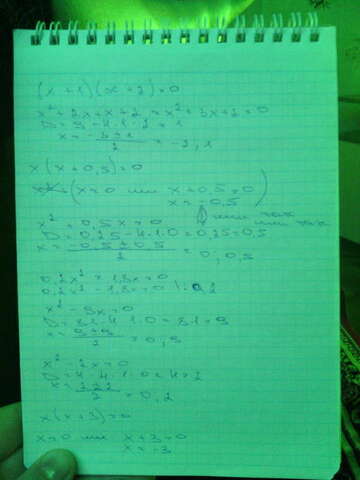 (x + 1)(x + 2) = 0
x² + 2x + x + 2 = x² + 3x + 2 = 0
D = 9 - 4 · 1 · 2 = 1
x = (-3 ± 1)/2 = -2, 1
x(x + 0,5) = 0
(x = 0 или x + 0,5 = 0
x = -0,5)
или так
x² + 0,5x = 0
или так
D = 0,25 - 4 · 1 · 0 = 0,25 = 0,5
x = (-0,5 ± 0,5)/2 = 0; 0,5
0,2x² = 1,8x = 0
0,2x² - 1,8x = 0 | : 0,2
x² - 9x = 0
D = 81 - 4 · 1 · 0 = 81 = 9
x = (9 ± 9)/2 = 0, 9
x² - 2x = 0
D = 4 - 4 · 1 · 0 = 4 = 2
x = (2 ± 2)/2 = 0, 2
x(x + 3) = 0
x = 0 или x + 3 = 0
x = -3